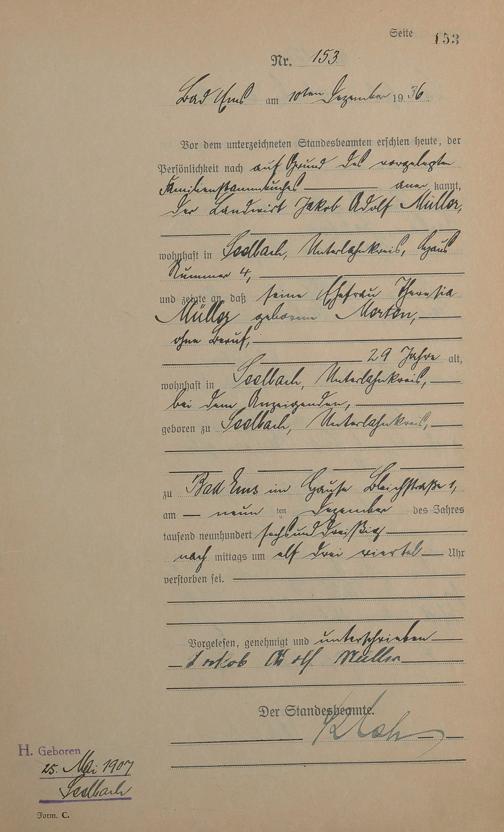 Seite 153
Nr. 153
Bad Ems am 10ten Dezember 1936.
Vor dem unterzeichneten Standesbeamten erschien heute, der
Persönlichkeit nach auf Grund des vorgelegten
Familienstammbuches anerkannt,
der Landwirt Jakob Adolf Müller,
wohnhaft in Seelbach, Unterlahnkreis, Haus
Nummer 4,
und zeigte an, daß seine Ehefrau Theresia
Müller geborene Morten,
ohne Beruf,
29 Jahre alt,
wohnhaft in Seelbach, Unterlahnkreis,
bei dem Anzeigenden,
geboren zu Seelbach, Unterlahnkreis,
zu Bad Ems im Hause Bleichstraße 1,
am neun ten Dezember des Jahres
tausend neunhundert sechsunddreißig
nach mittags um elf drei viertel Uhr
verstorben sei.
Vorgelesen, genehmigt und unterschrieben
Jakob Adolf Müller
Der Standesbeamte.
H. Geboren
25. Mai 1907
Seelbach
Form. C.